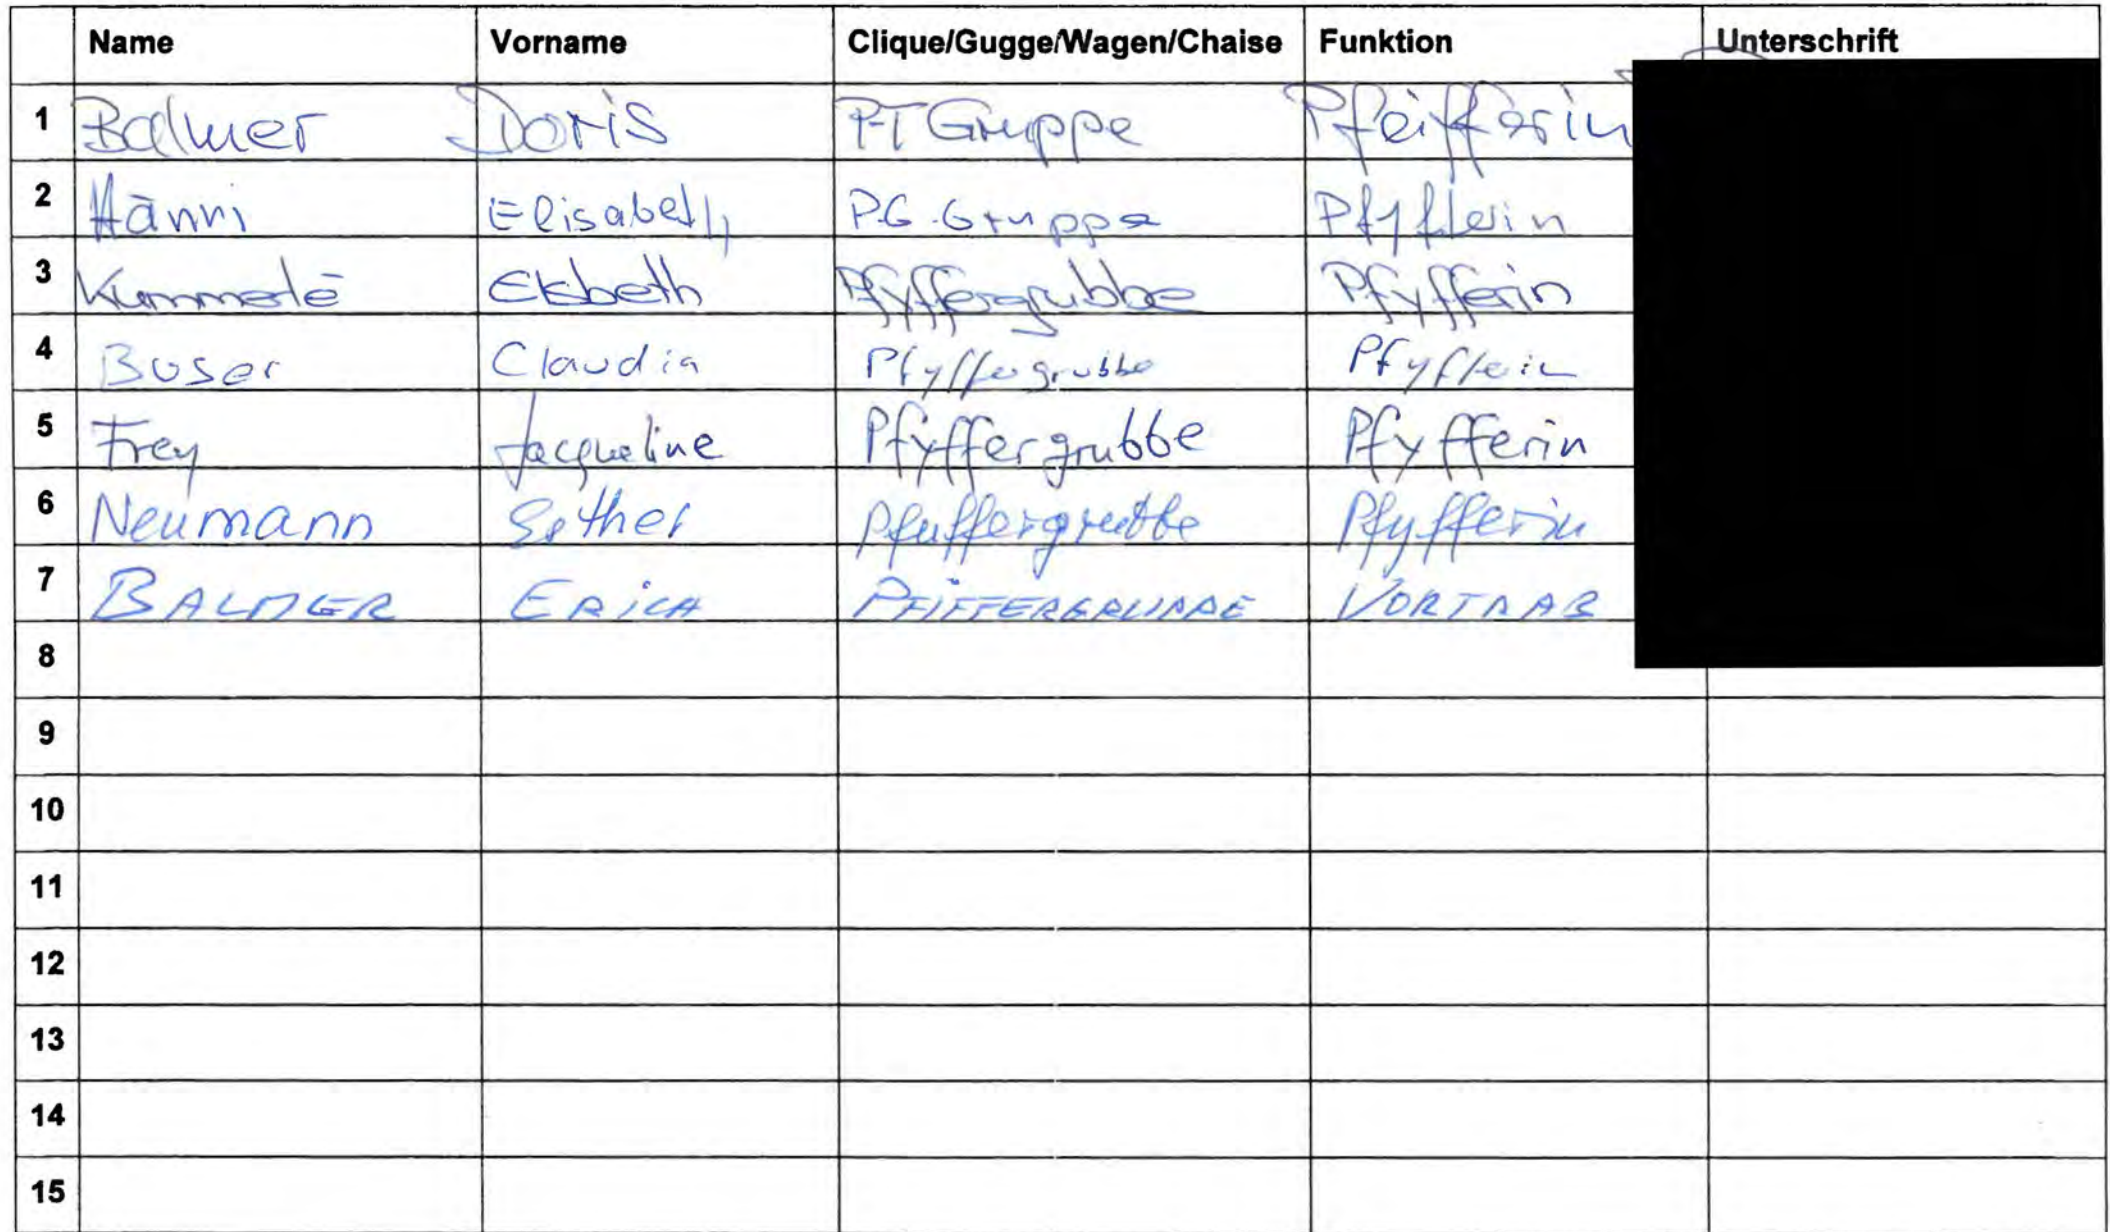 Name Vorname Clique/Gugge/Wagen/Chaise Funktion Unterschrift
1 Balmer Doris PT Gruppe Pfeifferin
2 Hänni Elisabeth P.G. Gruppe Pfyfferin
3 Kümmerle Elsbeth Pfyffergrubbe Pfyfferin
4 Buser Claudia Pfyffergrubbe Pfyfferin
5 Frey Jacqueline Pfyffergrubbe Pfyfferin
6 Neumann Esther Pfuffergrubbe Pfyfferin
7 BALMER ERICH PFIFFERGRUPPE VORTRAB
8
9
10
11
12
13
14
15